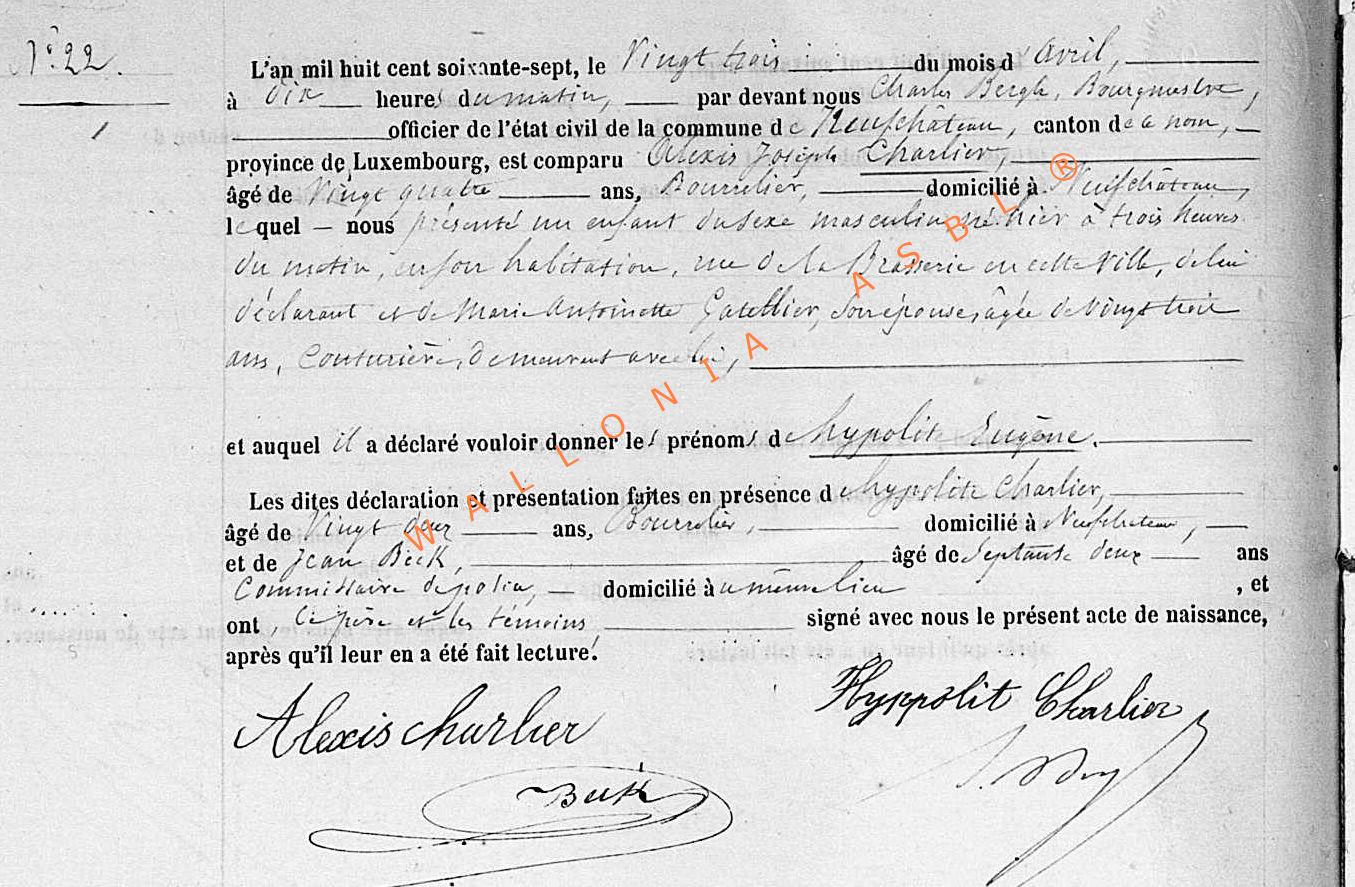 N° 22.
L'an mil huit cent soixante-sept, le Vingt trois du mois d'avril,
à dix heures du matin, par devant nous Charles Bergh, Bourgmestre,
officier de l'état civil de la commune de Neufchâteau, canton de ce nom,
province de Luxembourg, est comparu Alexis Joseph Charlier,
âgé de Vingt quatre ans, Bourrelier, domicilié à Neufchâteau,
lequel nous présenté un enfant du sexe masculin né hier à trois heures
du matin, en son habitation, rue de la Brasserie en cette Ville, de lui
déclarant et de Marie Antoinette Gatellier, son épouse, âgée de Vingt trois
ans, Couturière, demeurant avec lui,
et auquel il a déclaré vouloir donner les prénoms de hypolite Eugène.
Les dites déclaration et présentation faites en présence de hypolite Charlier,
âgé de Vingt deux ans, Bourrelier, domicilié à Neufchateau,
et de Jean Beck, âgé de Septante deux ans
Commissaire de police, domicilié à u même lieu, et
ont, le père et les témoins, signé avec nous le présent acte de naissance,
après qu'il leur en a été fait lecture.
Alexis charlier
Hyppolit Charlier
Beck
WALLONIA ASBL ®